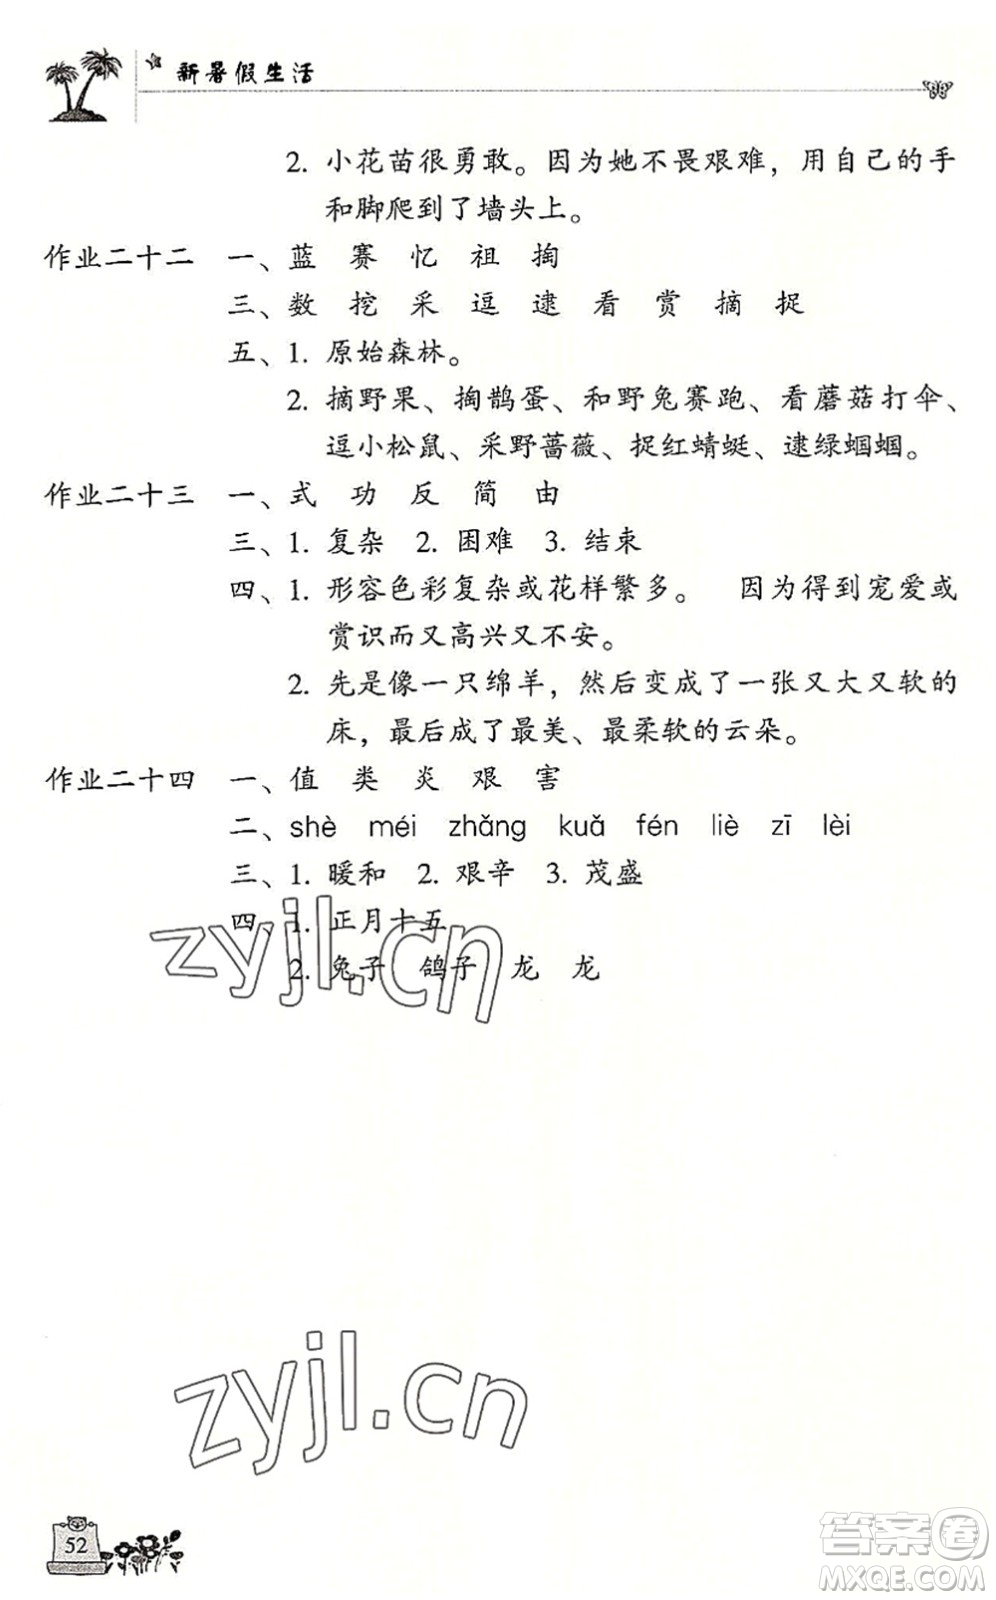 新暑假生活
2. 小花苗很勇敢。因为她不畏艰难，用自己的手
和脚爬到了墙头上。
作业二十二 一、蓝 赛 忆 祖 掏
三、数 挖 采 逗 逮 看 赏 摘 捉
五、1. 原始森林。
2. 摘野果、掏鹊蛋、和野兔赛跑、看蘑菇打伞、
逗小松鼠、采野蔷薇、捉红蜻蜓、逮绿蝈蝈。
作业二十三 一、式 功 反 简 由
三、1. 复杂 2. 困难 3. 结束
四、1. 形容色彩复杂或花样繁多。 因为得到宠爱或
赏识而又高兴又不安。
2. 先是像一只绵羊，然后变成了一张又大又软的
床，最后成了最美、最柔软的云朵。
作业二十四 一、值 类 炎 艰 害
二、shè méi zhǎng kuǎ fén liè zī lèi
三、1. 暖和 2. 艰辛 3. 茂盛
四、1. 正月十五
2. 兔子 鸽子 龙 龙
zyjl.cn
zyjl.cn
52
答案卷
MXQE.COM